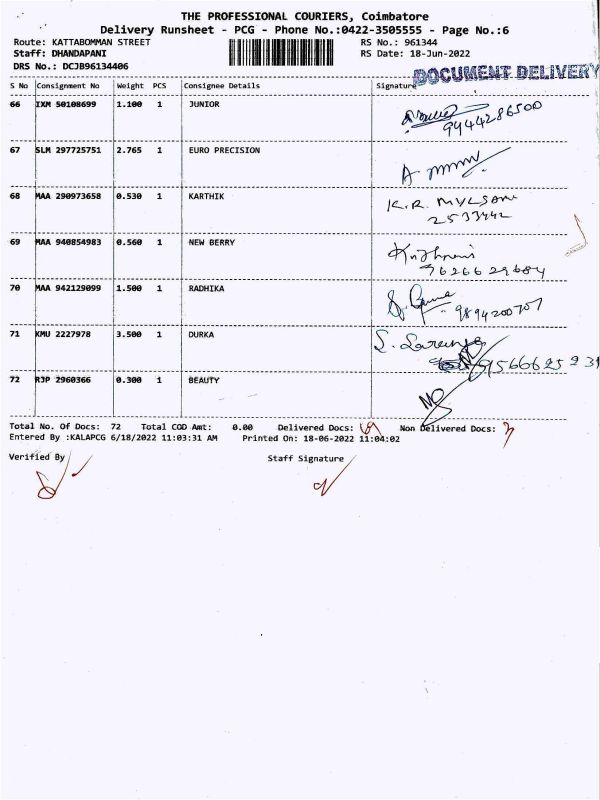 THE PROFESSIONAL COURIERS, Coimbatore
Delivery Runsheet - PCG - Phone No.:0422-3505555 - Page No.:6
Route: KATTABOMMAN STREET RS No.: 961344
Staff: DHANDAPANI RS Date: 18-Jun-2022
DRS No.: DCJB96134406
DOCUMENT DELIVERY
S No Consignment No Weight PCS Consignee Details Signature
66 IXM 50108699 1.100 1 JUNIOR
9444286500
67 SLM 297725751 2.765 1 EURO PRECISION
68 MAA 290973658 0.530 1 KARTHIK K.R. MYLSAMI
2533442
69 MAA 940854983 0.560 1 NEW BERRY
9626629684
70 MAA 942129099 1.500 1 RADHIKA
9894200707
71 KMU 2227978 3.500 1 DURKA
9566625231
72 RJP 2960366 0.300 1 BEAUTY
Total No. Of Docs: 72 Total COD Amt: 0.00 Delivered Docs: 69 Non Delivered Docs: 3
Entered By :KALAPCG 6/18/2022 11:03:31 AM Printed On: 18-06-2022 11:04:02
Verified By Staff Signature